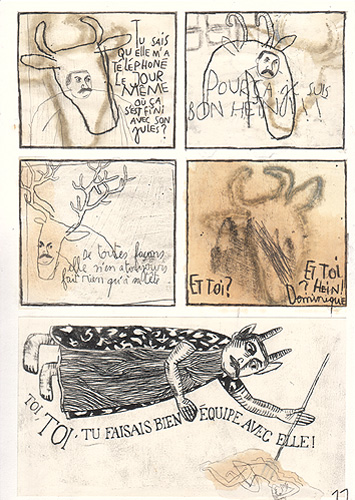 Tu sais
qu'elle m'a
téléphoné
le jour
même
où ça
s'est fini
avec son
jules?
POUR ÇA je suis
BON HEIN!!
de toutes façons
elle n'en a toujours
fait rien qu'à
Et toi?
Et toi
? Hein!!
Dominique
TOI, TOI, TU FAISAIS BIEN ÉQUIPE AVEC ELLE!
17